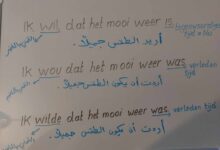 Ik wil dat het mooi weer is
أريد الطقس جميلاً.
Ik wou dat het mooi weer was verleden tijd
أردت أن يكون الطقس جميلاً.
Ik wilde dat het mooi weer was verleden tijd
أردت أن يكون الطقس جميلاً.